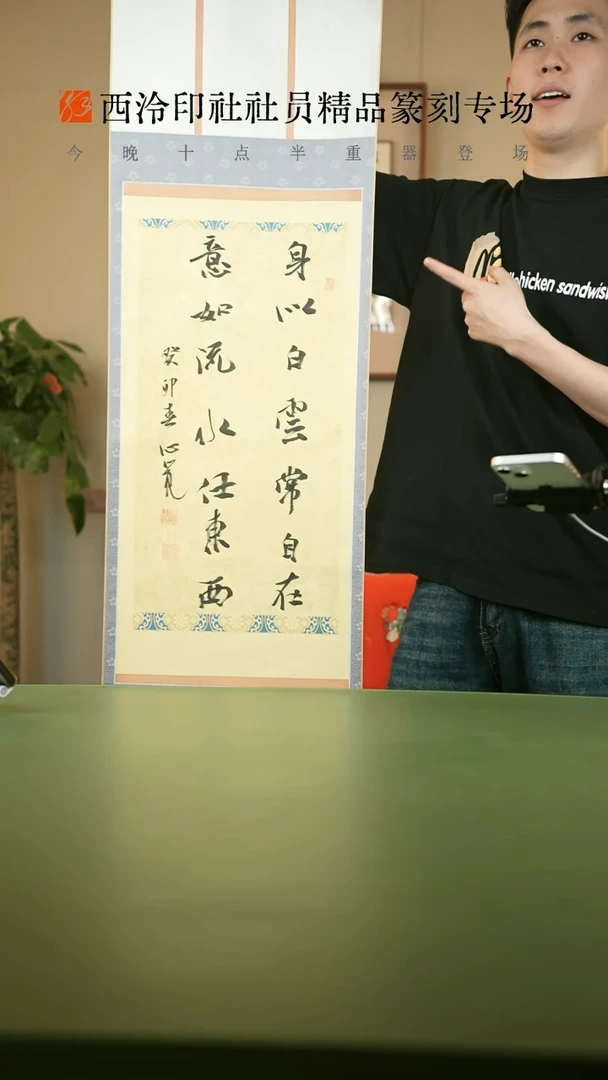 西泠印社社员精品篆刻专场
今晚十点半重器登场
身以白雲常自在
意如流水任東西
癸卯春心覚
chicken sandwis